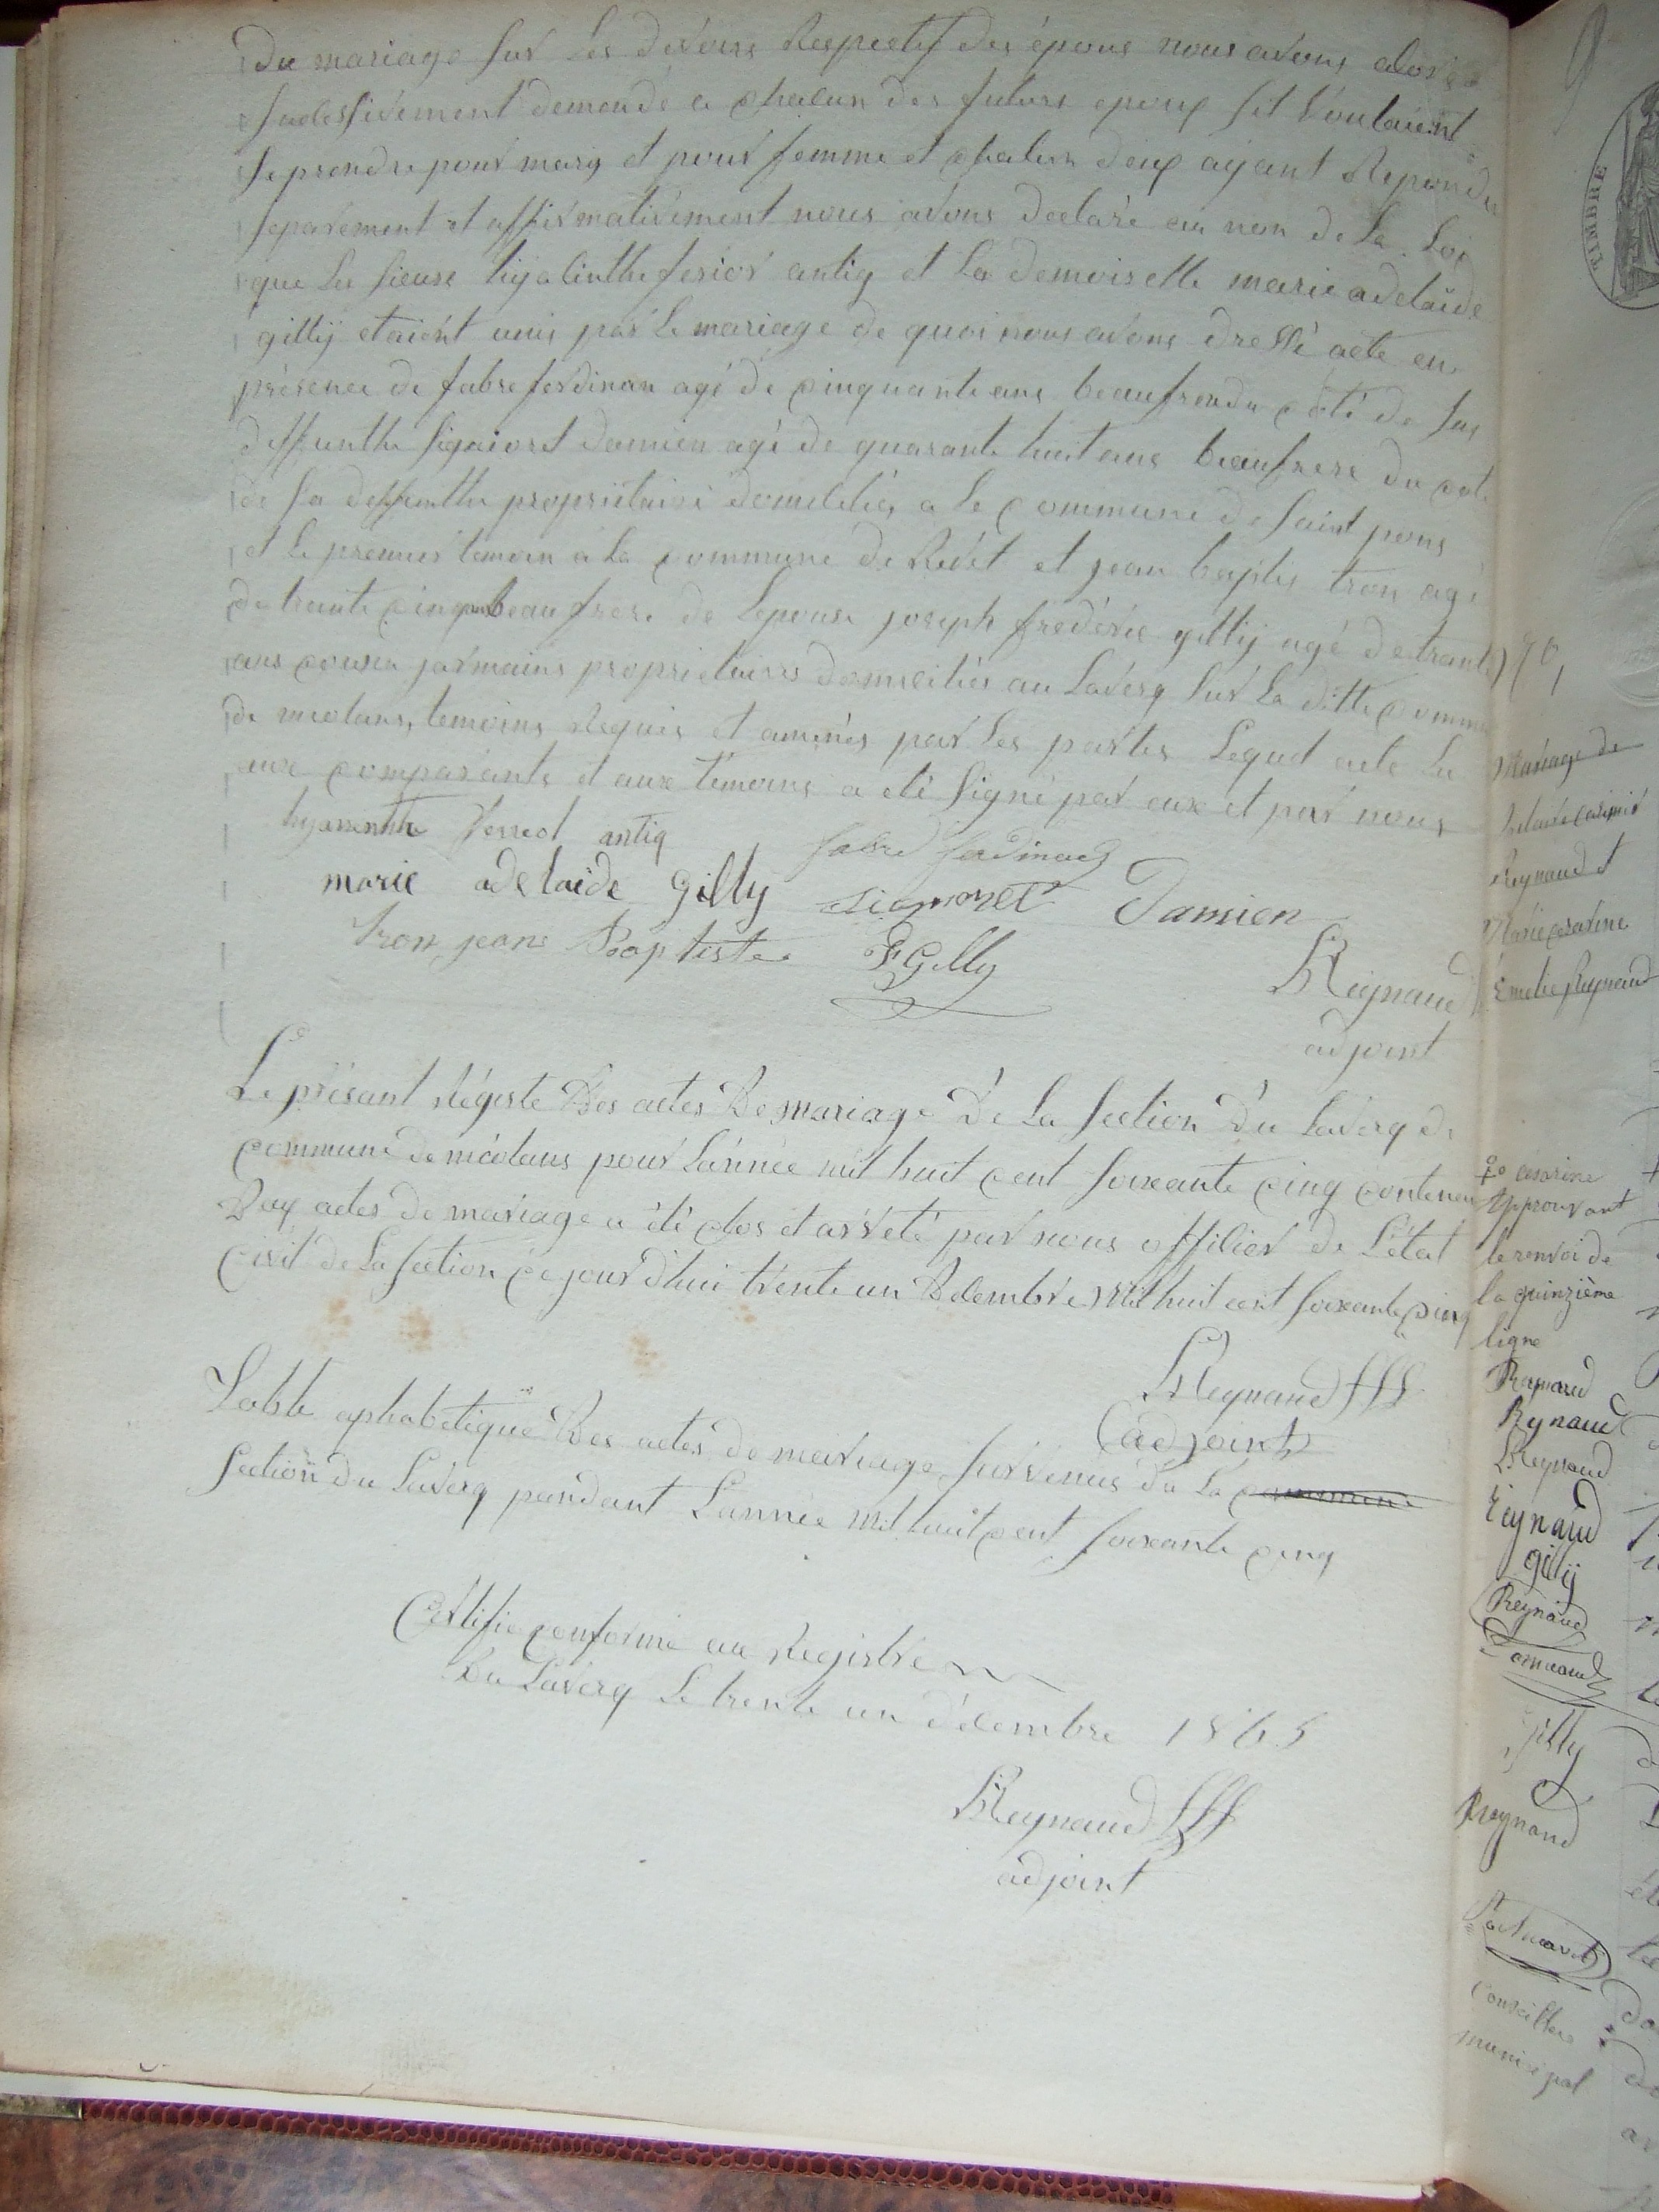 Du mariage sur Les devoirs Respectif des épous nous avons alors
sucessivement demendé a chacun des futurs epoux sil voulaient
se prendre pour mary et pour femme et chacun deux ayant Repondu
separement et affirmativement nous avons declaré au non de La Loi
que Les sieuse hyacinthe feriol antiq et La demoiselle marie adelaïde
gillÿ etaient unis par le mariage de quoi nous avons dressé acte en
présence de fabre ferdinan agé de cinquante ans beaufrere du coté de sa
deffunthe signoret Damien agé de quarante huit ans beaufrere du coté
de sa deffunthe proprietaire domicilié a la commune de saint pons
et le premier temoin a la commune de Revel et jean baptiste tron agé
de trante cinq ans beau frere de Lepouse joseph fredéric gillÿ agé de trante
ans cousin jarmains proprietaires domicilies au Laverq sur la ditte commune
de meolans, temoins Requis et amenés par les partes Lequel acte Lu
aux comparants et aux témoins a eté signé par eux et par nous
hyacinthe feriol antiq fabre ferdinand
marie adelaide Gillÿ signoret Damien
tron jean Baptiste F Gilly
Reynaud
adjoint
Le présant Régiste Des actes De mariage De La section Du Laverq de
commune de méolans pour Lannée mil huit cent soixante cinq contenen
Deux actes de mariage a été clos et arrété par nous officier de L'état
Civil de la section ce jourd'hui trente un Décembre mil huit cent soixante cinq
Reynaud
adjoint
Table aphabetique Des actes de mariage survenus du La commune
section du Laverq pendant Lannée mil huit cent soixante cinq
Certifié conforme au Registre
Du Laverq Le trente un décembre 1865
Reynaud
adjoint
TIMBRE
Mariage de
casimir
Reynaud et
Marie césarine
Emelie Reynaud
césarine
Approuvant
le renvoi de
la quinzième
ligne
Raynaud
Reynaud
Reynaud
Reynaud
gillÿ
Reynaud
Gilly
Reynaud
Conseiller
municipal